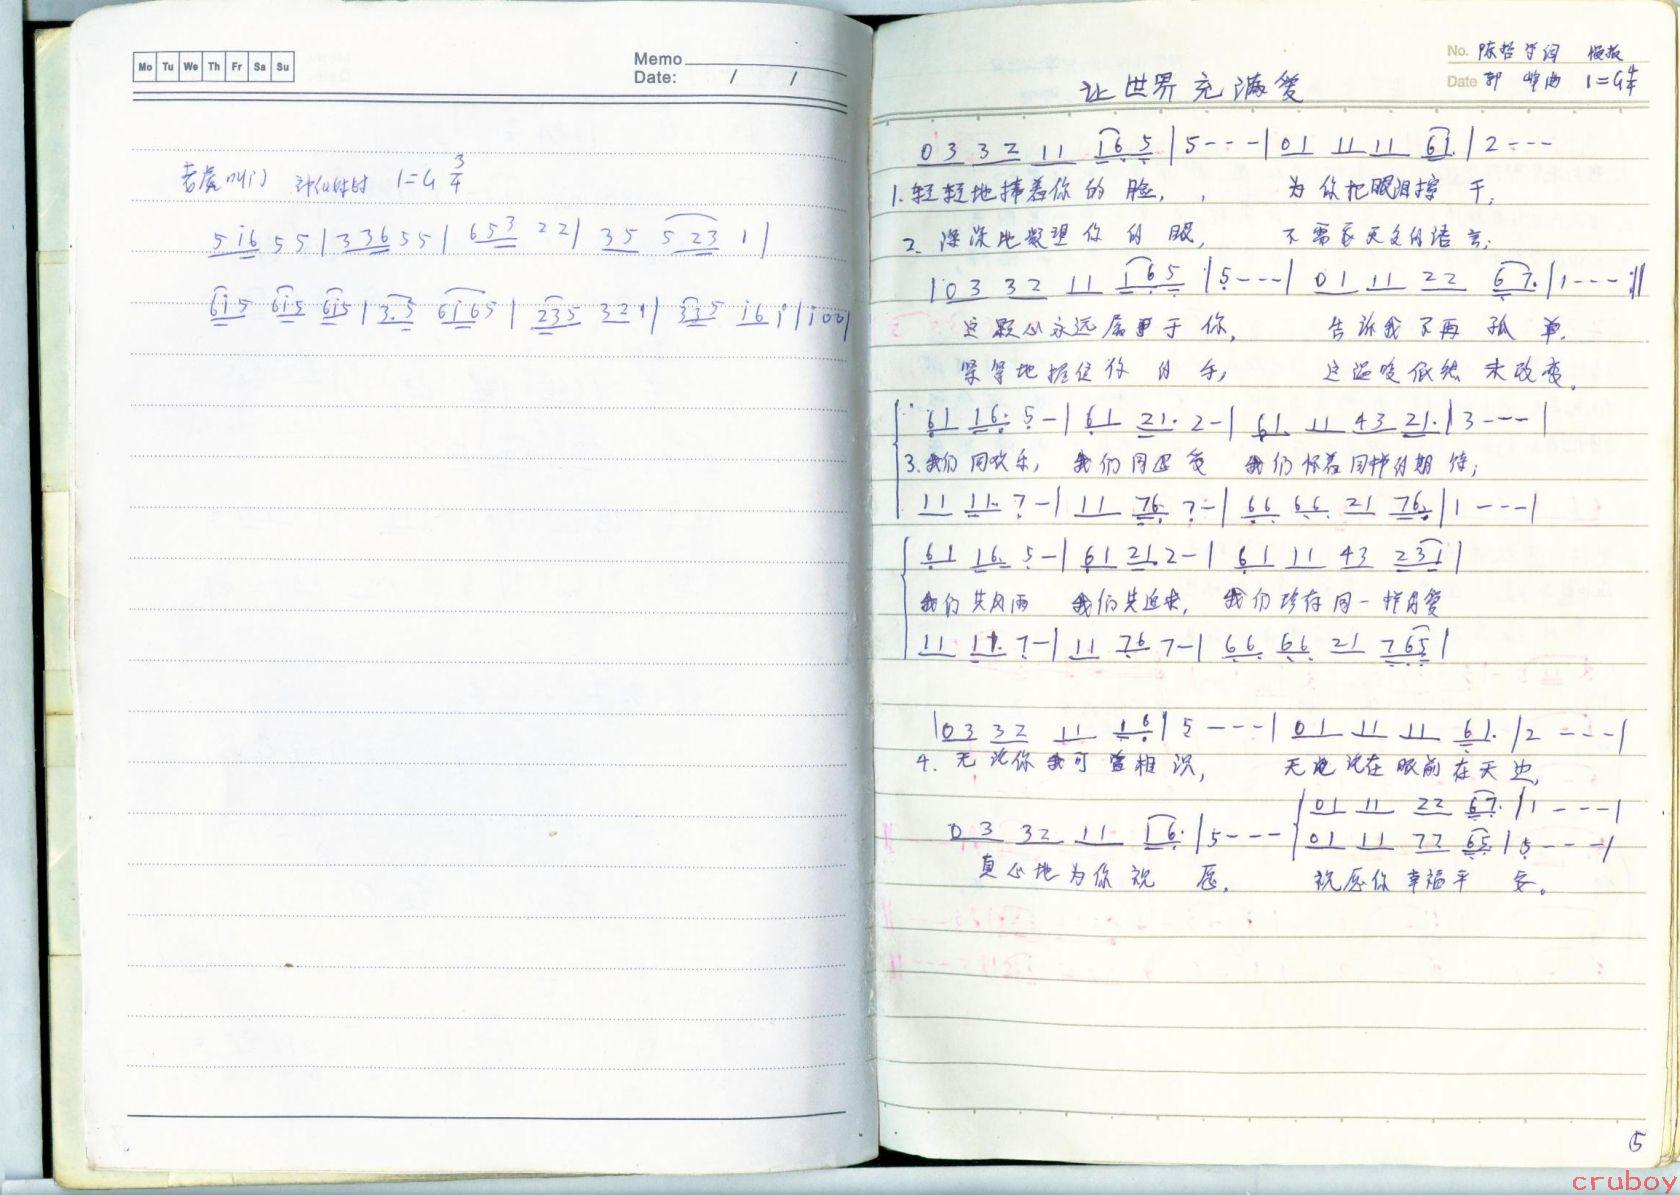 Mo Tu We Th Fr Sa Su
Memo
Date: / /
1=G 3/4
5 i6 5 5 | 3 36 5 5 | 653 2 2 | 35 523 1 |
6i5 6i5 6i5 | 3.5 6i65 | 235 321 | 335 i6i | i00 |
No. 陈哲 慢板
Date 郭峰曲 1=G 4/4
让世界充满爱
03 32 11 165 | 5--- | 01 11 11 61. | 2---
1.轻轻地捧着你的脸, 为你把眼泪擦干;
2.深深地凝望你的眼, 不需要更多的语言;
| 03 32 11 165 | 5--- | 01 11 22 67. | 1--- :||
这颗心永远属于你, 告诉我不再孤单.
紧紧地握住你的手, 这温暖依然未改变。
61 16. 5- | 61 21. 2- | 61. 11 43 21. | 3--- |
3.我们同欢乐, 我们同忍受 我们怀着同样的期待;
11 11. 7- | 11 76. 7- | 66 66. 21 76. | 1--- |
61 16. 5- | 61 21. 2- | 61 11 43 231 |
我们共风雨 我们共追求, 我们珍存同一样的爱
11 11. 7- | 11 76. 7- | 66. 66. 21 765 |
| 03 32 11 16 | 5--- | 01 11 11 61. | 2---|
4.无论你我可曾相识, 无论在眼前在天边,
01 11 22 67. | 1---|
03 32 11 16. | 5---
01 11 77 65 | 5---|
真心地为你祝愿, 祝愿你幸福平安。
5
cruboy